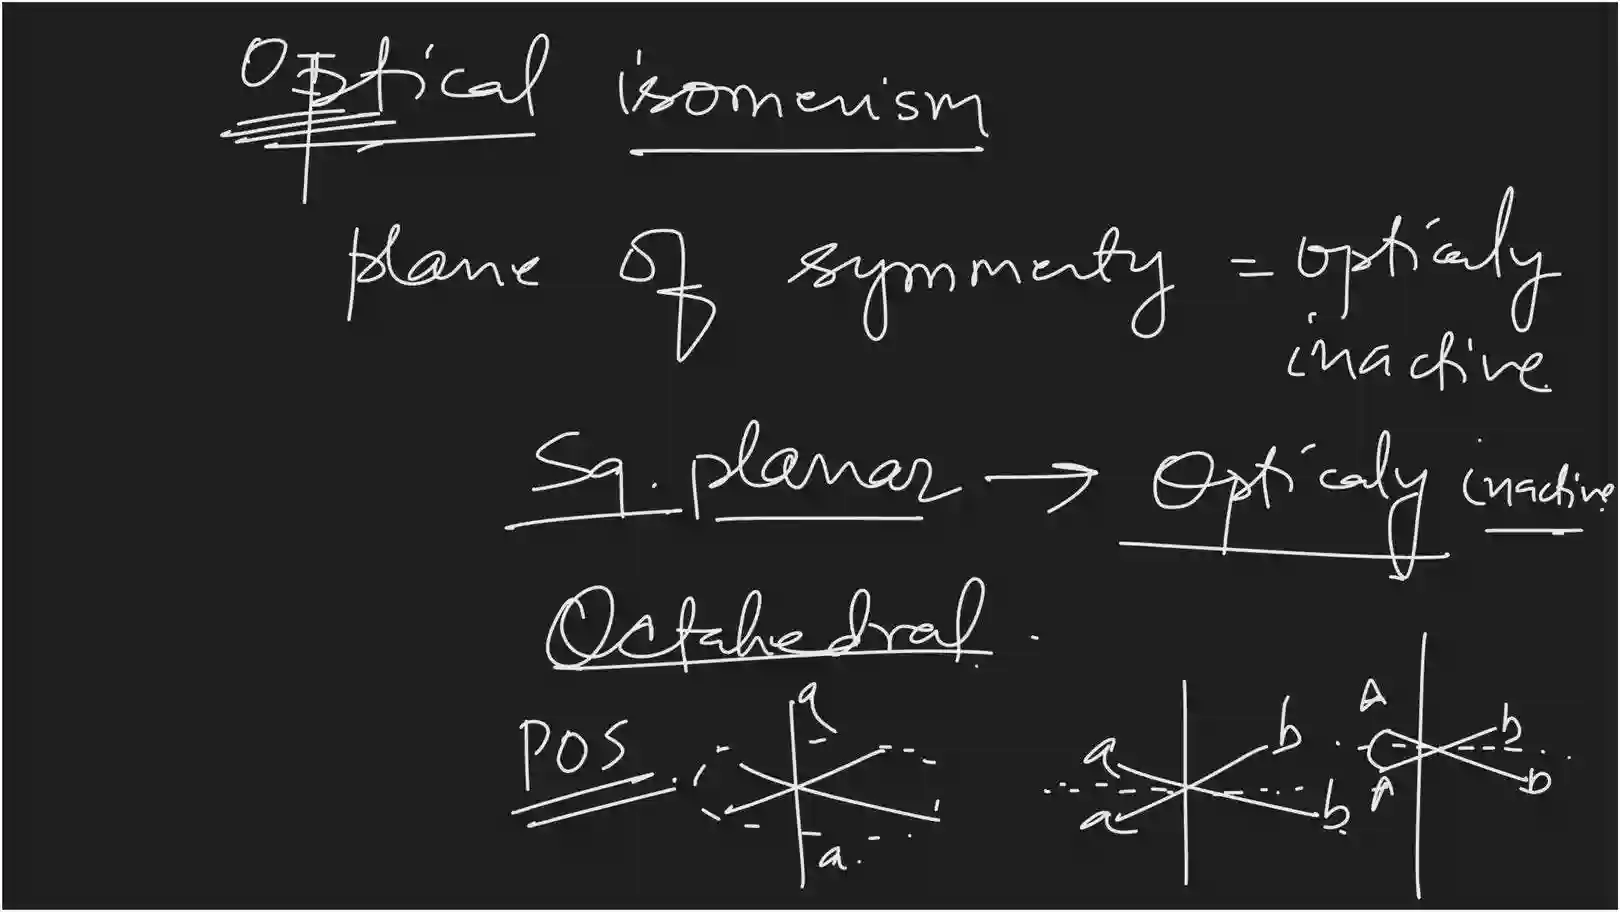 Optical isomerism
plane of symmerty = opticaly
inactive.
Sq. planar → Opticaly inactive.
Octahedral.
POS
a
a.
a b
a b
A b
A b